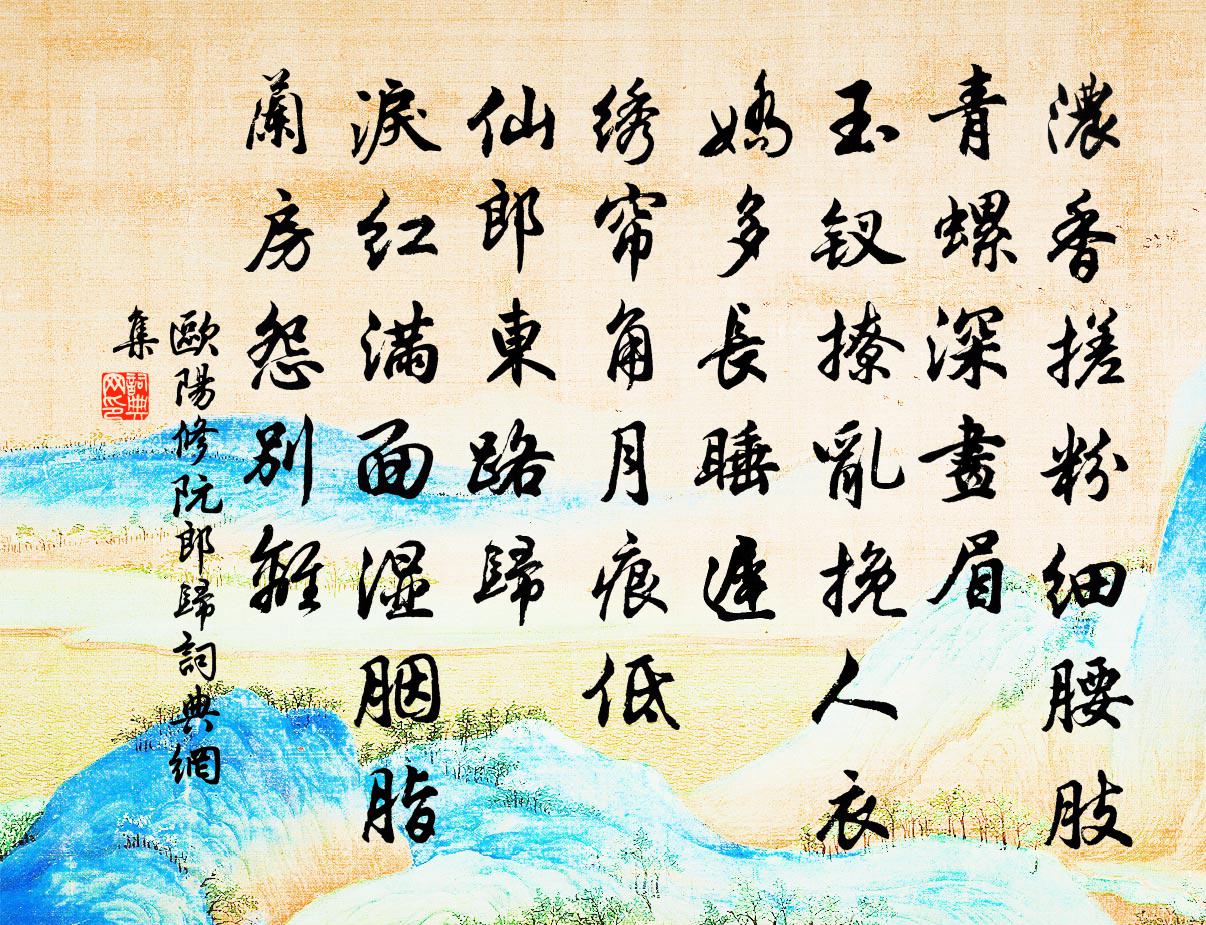 濃香搓粉细腰肢
青螺深畫眉
玉钗撩亂挽人衣
嬌多長睡遲
绣帘角月痕低
仙郎東路歸
淚红满面湿胭脂
蘭房怨別離
歐陽修阮郎歸詞典網
集
詞典網印